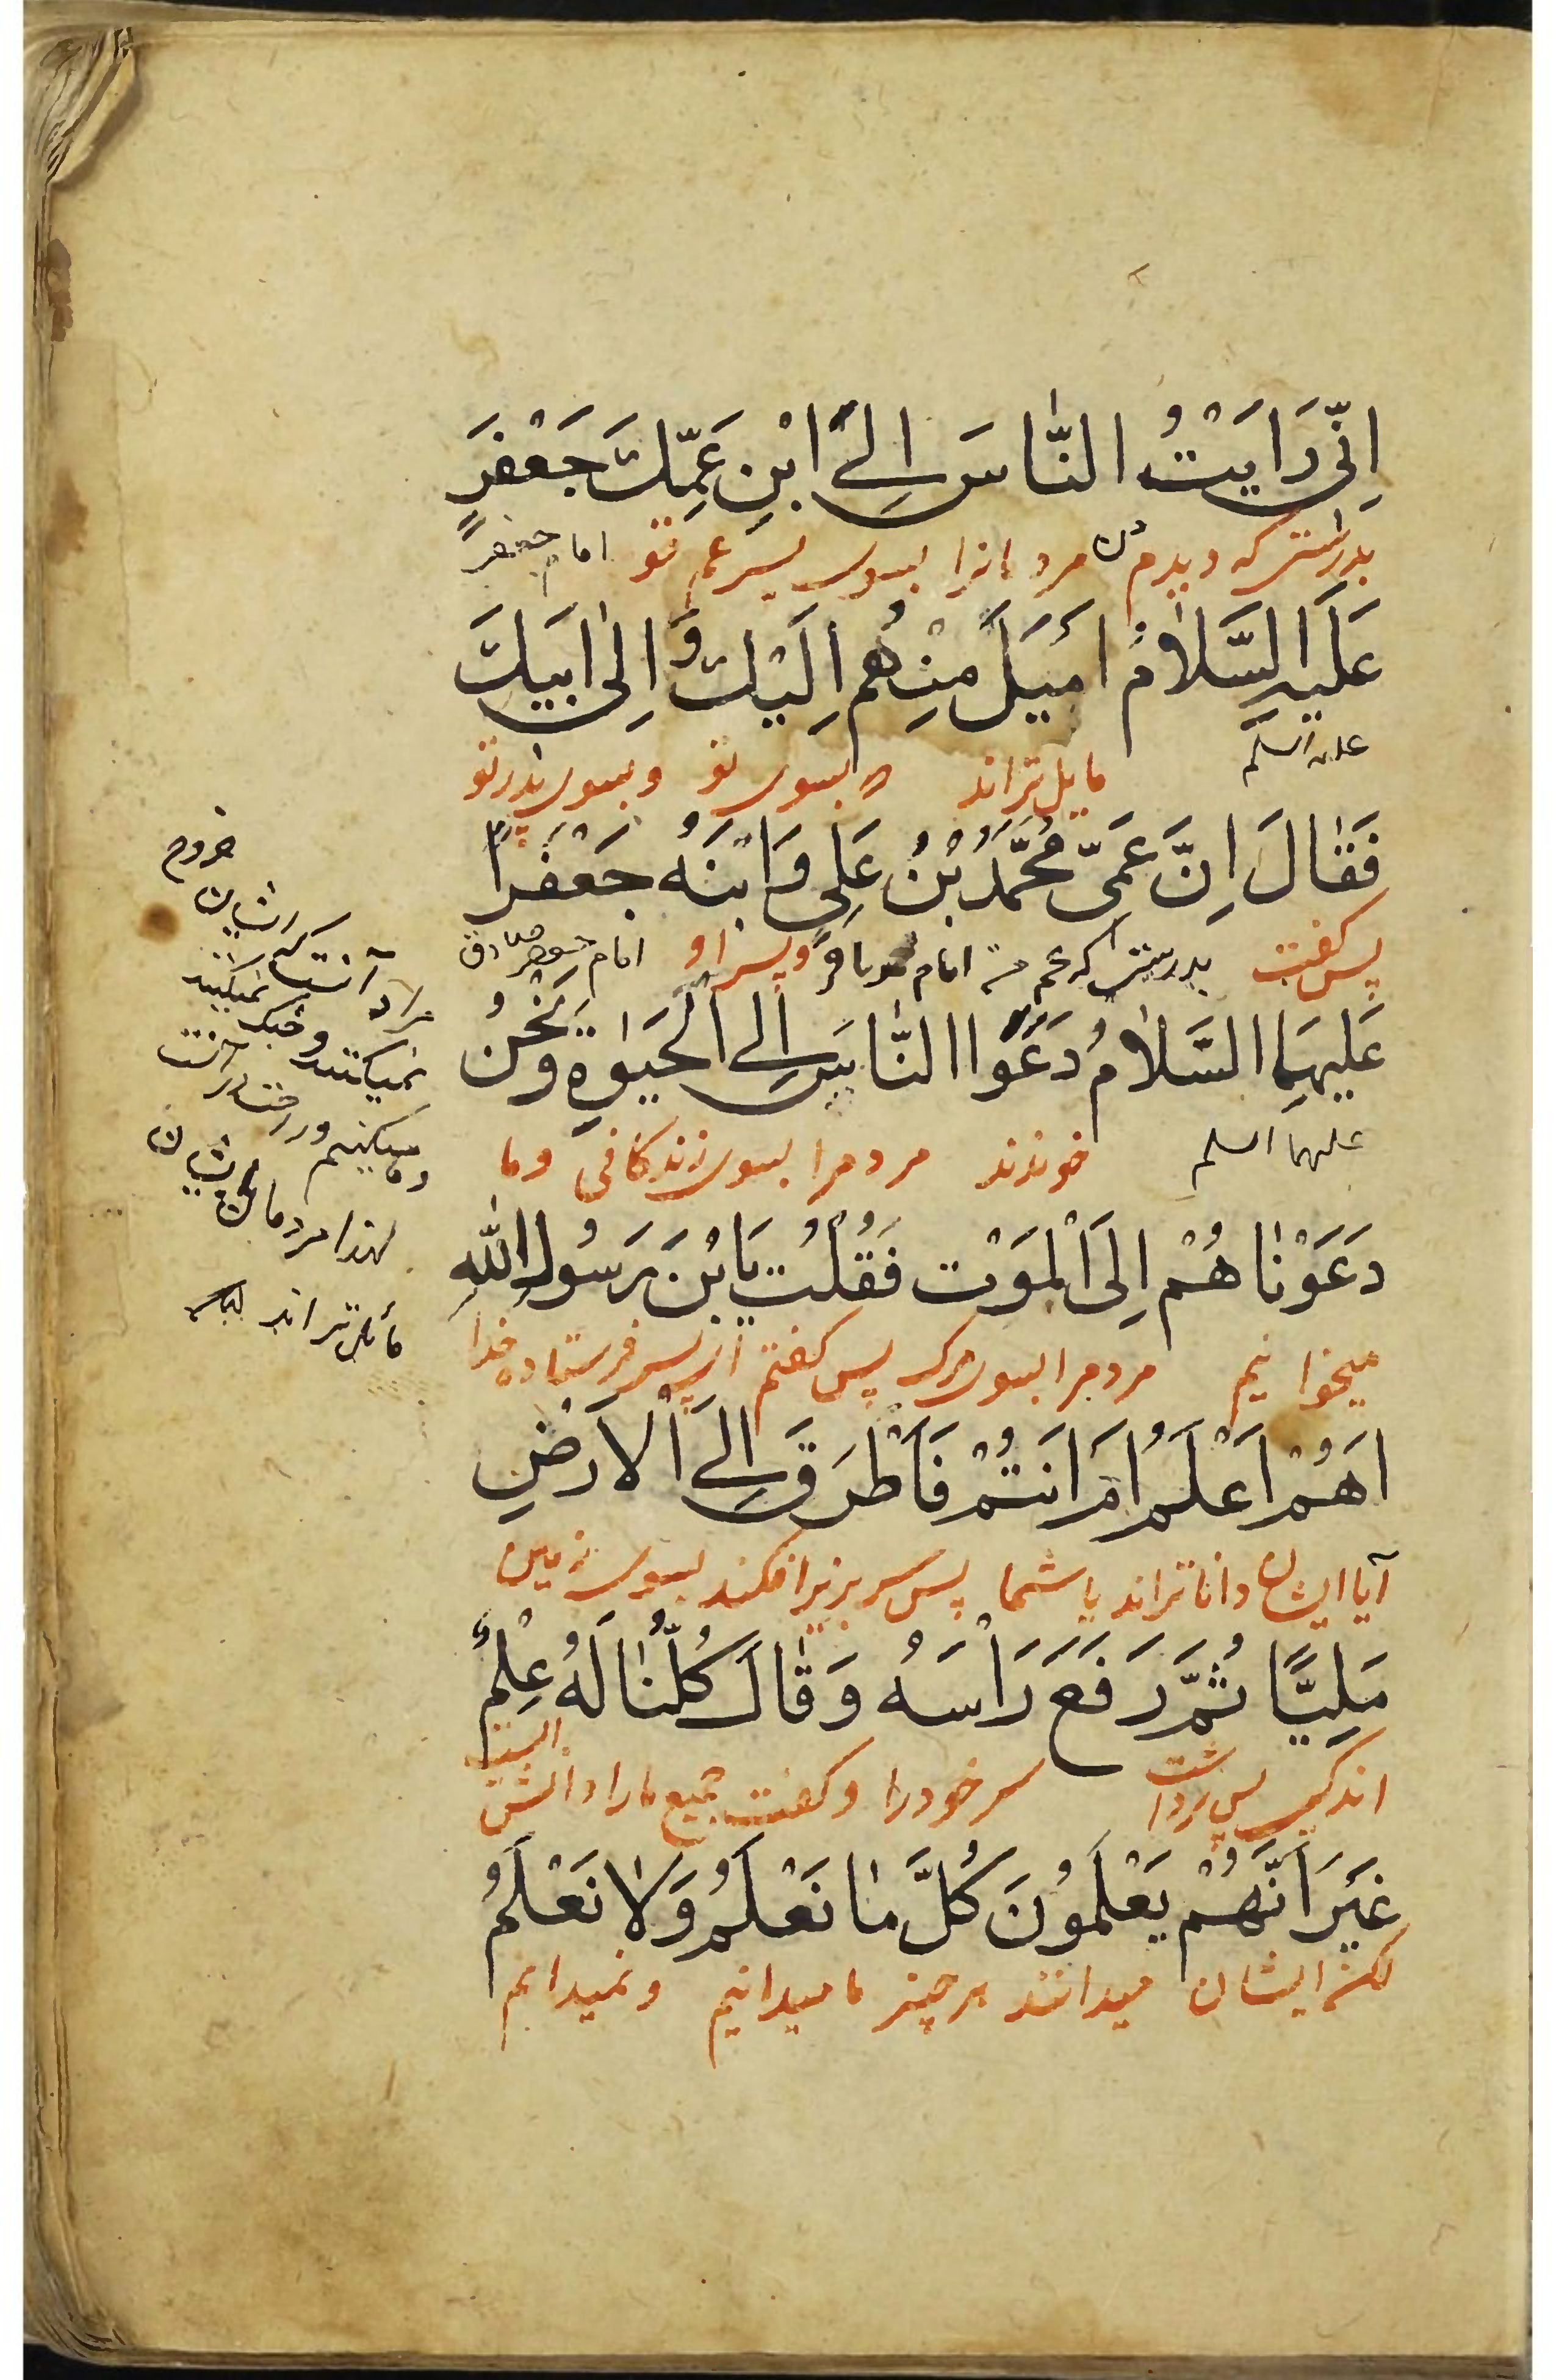 اِنّي رَاَيْتُ النّٰاسَ اِلَى ابْنِ عَمِّكَ جَعْفَرٍ
بدرستی که دیدم من مردمانرا بسوی پسر عم تو امام جعفر
عَلَيهِ السَّلاٰمُ اَمْيَلَ مِنْهُم اِلَيْكَ وَ اِلىٰ اَبيكَ
علیه السلم مایل تراند بسوی تو و بسوی پدر تو
فَقٰالَ اِنَّ عَمّي مُحَمَّدَ بْنَ عَلِيٍ وَ ابْنَهُ جَعْفَرًا
پس گفت بدرستی که عم من امام محمد باقر و پسر او امام جعفر صادق
عَلَيهِمَا السَّلاٰمُ دَعَوَا النّٰاسَ اِلَى الْحَيٰوةِ وَ نَحْنُ
علیهما السلم خوندند مردمرا بسوی زندکانی وما
دَعَوْنٰاهُمْ اِلَى الْمَوْتِ فَقُلْتُ يَا بْنَ رَسُولِ اللهِ
میخوانیم مردمرا بسوی مرک پس کفتم ای پسر فرستاده خدا
اَهُمْ اَعْلَمُ اَمْ اَنْتُمْ فَاَطْرَقَ اِلَى الْاَرْضِ
آیا ایشان داناتراند یا شما پس سر بزیر افکند بسوی زمین
مَلِيًّا ثُمَّ رَفَعَ رَاْسَهُ وَ قٰالَ كُلُّنٰا لَهُ عِلْمٌ
اندکی پس برداشت سر خودرا و کفت جمیع مارا دانش است
غَيْرَ اَنَّهُمْ يَعْلَمُونَ كُلَّ مٰا نَعْلَمُ وَ لاٰ نَعْلَمُ
لکن ایشان میدانند هر چیز ما میدانیم و نمیدانم
خروج
مراد آنست که ایشان
نمیکنند و جنک نمیکنند
وما میکنیم
لهذا مردمان
مائل تراند